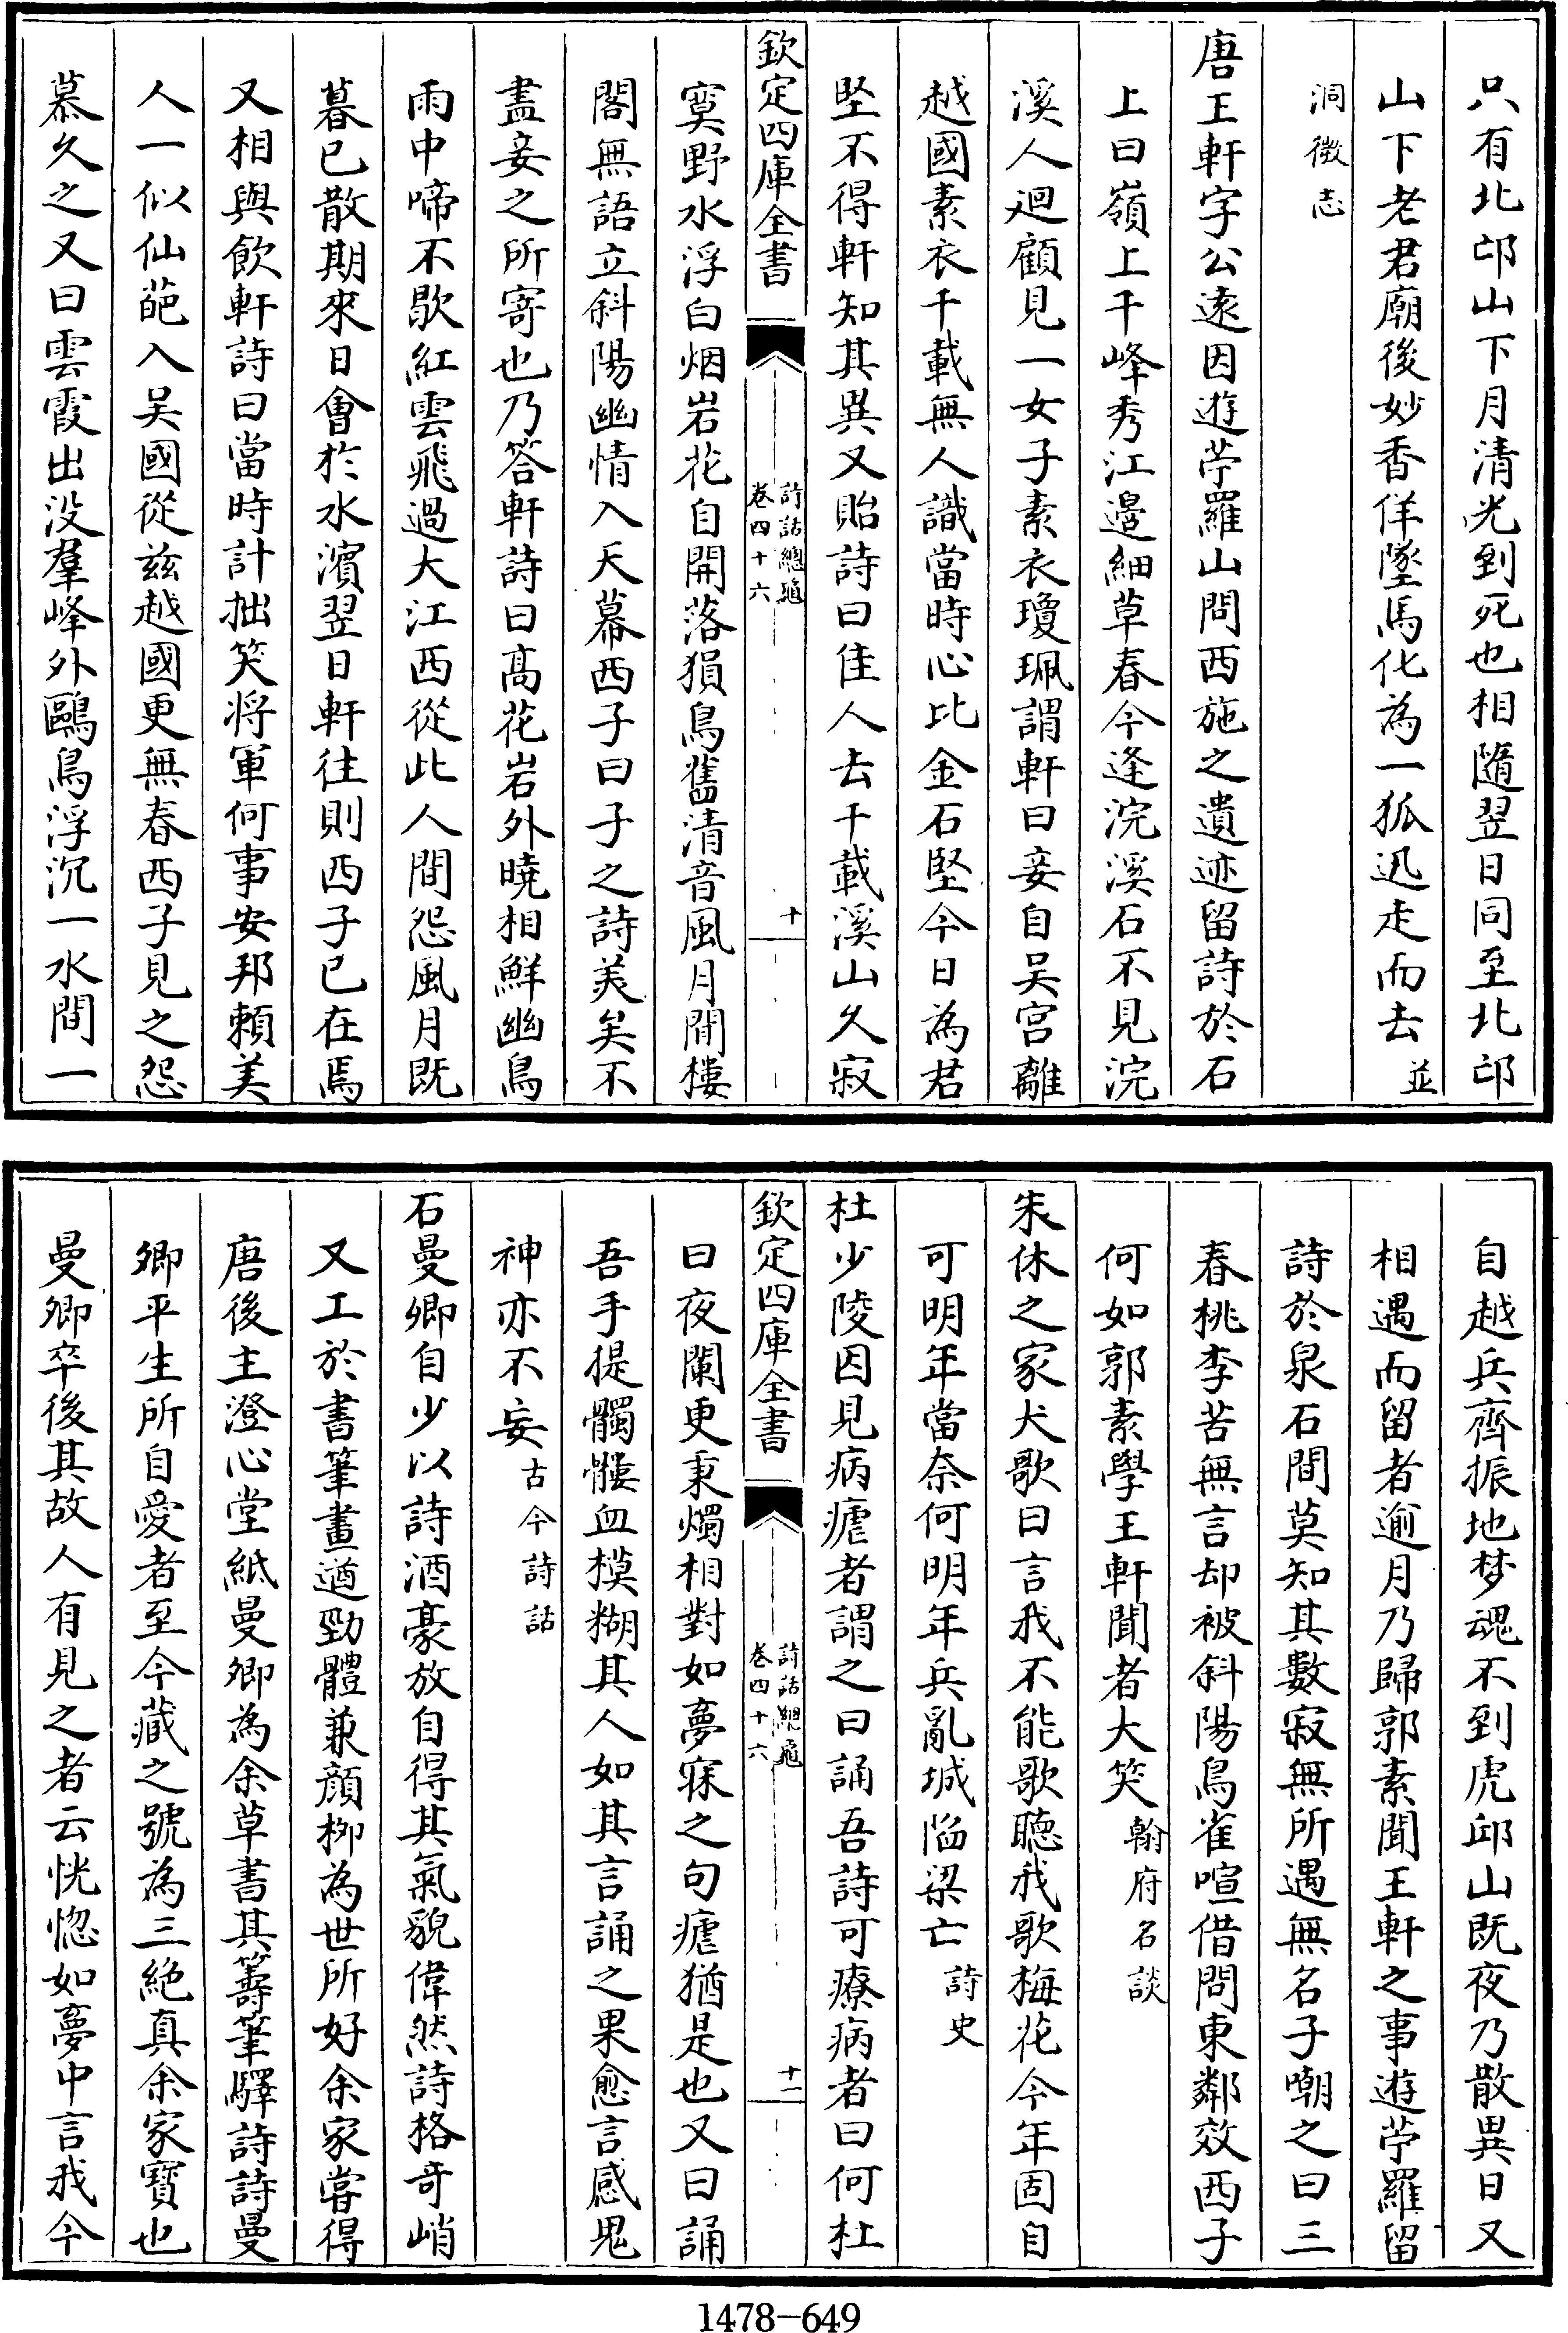 只有北邙山下月清光到死也相隨翌日同至北邙
山下老君廟後妙香佯墜馬化為一狐迅走而去並
洞微志
唐王軒字公遠因遊苧羅山問西施之遺迹留詩於石
上曰嶺上千峰秀江邊細草春今逢浣溪石不見浣
溪人迴顧見一女子素衣瓊珮謂軒曰妾自吴宫離
越國素衣千載無人識當時心比金石堅今日為君
堅不得軒知其異又貽詩曰佳人去千載溪山久寂
欽定四庫全書
詩話總龜
卷四十六
十
寞野水浮白烟岩花自開落猿鳥舊清音風月閒樓
閣無語立斜陽幽情入天幕西子曰子之詩美矣不
盡妾之所寄也乃答軒詩曰髙花岩外曉相鮮幽鳥
雨中啼不歇紅雲飛過大江西從此人間怨風月既
暮已散期來日會於水濱翌日軒往則西子已在焉
又相與飲軒詩曰當時計拙笑将軍何事安邦賴美
人一似仙葩入吴國從兹越國更無春西子見之怨
慕久之又曰雲霞出没羣峰外鷗鳥浮沉一水間一
自越兵齊振地梦魂不到虎邱山既夜乃散異日又
相遇而留者逾月乃歸郭素聞王軒之事遊苧羅留
詩於泉石間莫知其數寂無所遇無名子嘲之曰三
春桃李苦無言却被斜陽鳥雀喧借問東鄰效西子
何如郭素學王軒聞者大笑翰府名談
朱休之家犬歌曰言我不能歌聽我歌梅花今年固自
可明年當奈何明年兵亂城陷梁亡詩史
杜少陵因見病瘧者謂之曰誦吾詩可療病者曰何杜
欽定四庫全書
詩話總龜
卷四十六
十一
曰夜闌更秉燭相對如夢寐之句瘧猶是也又曰誦
吾手提髑髏血模糊其人如其言誦之果愈言感鬼
神亦不妄古今詩話
石曼卿自少以詩酒豪放自得其氣貌偉然詩格奇峭
又工於書筆畫遒勁體兼顔栁為世所好余家嘗得
唐後主澄心堂紙曼卿為余草書其籌筆驛詩詩曼
卿平生所自愛者至今藏之號為三絶真余家寶也
曼卿卒後其故人有見之者云恍惚如夢中言我今
1478-649